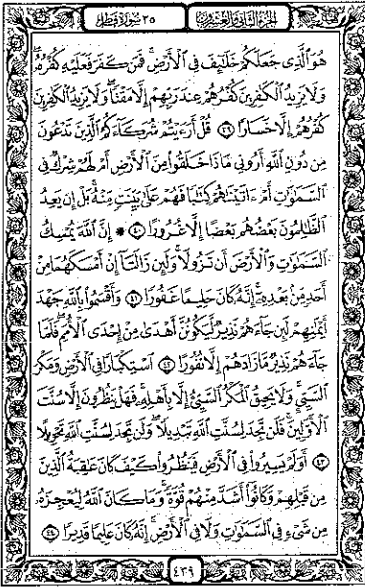 الجزء الثاني والعشرون ٣٥ سورة فاطر
هُوَ ٱلَّذِى جَعَلَكُمْ خَلَٰٓئِفَ فِى ٱلْأَرْضِ ۚ فَمَن كَفَرَ فَعَلَيْهِ كُفْرُهُۥ ۖ
وَلَا يَزِيدُ ٱلْكَٰفِرِينَ كُفْرُهُمْ عِندَ رَبِّهِمْ إِلَّا مَقْتًا ۖ وَلَا يَزِيدُ ٱلْكَٰفِرِينَ
كُفْرُهُمْ إِلَّا خَسَارًا ٣٩ قُلْ أَرَءَيْتُمْ شُرَكَآءَكُمُ ٱلَّذِينَ تَدْعُونَ
مِن دُونِ ٱللَّهِ أَرُونِى مَاذَا خَلَقُوا۟ مِنَ ٱلْأَرْضِ أَمْ لَهُمْ شِرْكٌ فِى
ٱلسَّمَٰوَٰتِ أَمْ ءَاتَيْنَٰهُمْ كِتَٰبًا فَهُمْ عَلَىٰ بَيِّنَتٍ مِّنْهُ ۚ بَلْ إِن يَعِدُ
ٱلظَّٰلِمُونَ بَعْضُهُم بَعْضًا إِلَّا غُرُورًا ٤٠ ۞ إِنَّ ٱللَّهَ يُمْسِكُ
ٱلسَّمَٰوَٰتِ وَٱلْأَرْضَ أَن تَزُولَا ۚ وَلَئِن زَالَتَآ إِنْ أَمْسَكَهُمَا مِنْ
أَحَدٍ مِّنۢ بَعْدِهِۦٓ ۚ إِنَّهُۥ كَانَ حَلِيمًا غَفُورًا ٤١ وَأَقْسَمُوا۟ بِٱللَّهِ جَهْدَ
أَيْمَٰنِهِمْ لَئِن جَآءَهُمْ نَذِيرٌ لَّيَكُونُنَّ أَهْدَىٰ مِنْ إِحْدَى ٱلْأُمَمِ ۖ فَلَمَّا
جَآءَهُمْ نَذِيرٌ مَّا زَادَهُمْ إِلَّا نُفُورًا ٤٢ ٱسْتِكْبَارًا فِى ٱلْأَرْضِ وَمَكْرَ
ٱلسَّيِّئِ ۚ وَلَا يَحِيقُ ٱلْمَكْرُ ٱلسَّيِّئُ إِلَّا بِأَهْلِهِۦ ۚ فَهَلْ يَنظُرُونَ إِلَّا سُنَّتَ
ٱلْأَوَّلِينَ ۚ فَلَن تَجِدَ لِسُنَّتِ ٱللَّهِ تَبْدِيلًا ۖ وَلَن تَجِدَ لِسُنَّتِ ٱللَّهِ تَحْوِيلًا
٤٣ أَوَلَمْ يَسِيرُوا۟ فِى ٱلْأَرْضِ فَيَنظُرُوا۟ كَيْفَ كَانَ عَٰقِبَةُ ٱلَّذِينَ
مِن قَبْلِهِمْ وَكَانُوٓا۟ أَشَدَّ مِنْهُمْ قُوَّةً ۚ وَمَا كَانَ ٱللَّهُ لِيُعْجِزَهُۥ
مِن شَىْءٍ فِى ٱلسَّمَٰوَٰتِ وَلَا فِى ٱلْأَرْضِ ۚ إِنَّهُۥ كَانَ عَلِيمًا قَدِيرًا ٤٤
٤٣٩